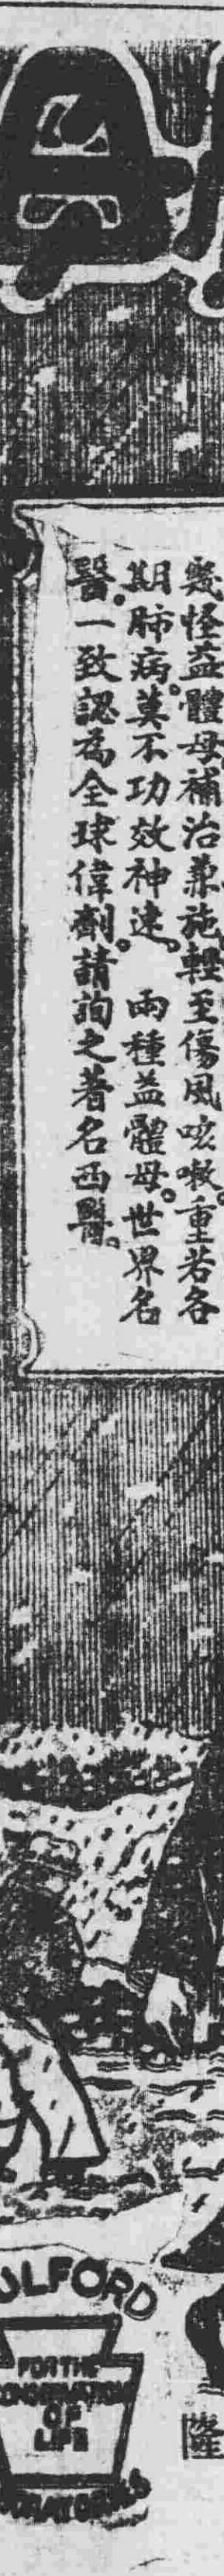 幾怪益體母補治兼施輕至傷風咳嗽重若各
期肺病。莫不功效神速。兩種益體母。世界名
醫。一致認為全球偉劑。請詢之著名西醫。
ULFORD
FOR THE
CONSERVATION
OF
LIFE
陸